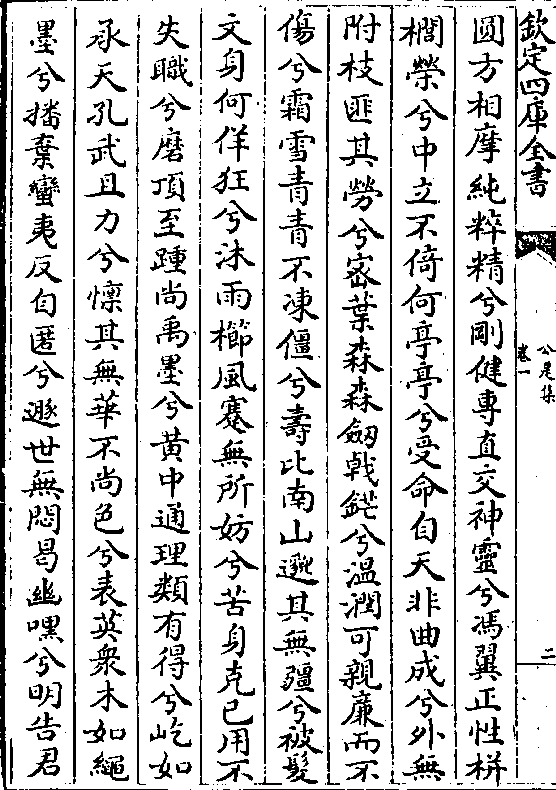 欽定四庫全書
公是集
卷一
二
圓方相摩純粹精兮剛健專直交神靈兮馮翼正性栟
櫚榮兮中立不倚何亭亭兮受命自天非曲成兮外無
附枝匪其勞兮宻葉森森劔㦸鋩兮溫潤可親廉而不
傷兮霜雪青青不凍僵兮壽比南山邈其無疆兮被髮
文身何佯狂兮沐雨櫛風蹇無所妨兮苦身克已用不
失職兮磨頂至踵尚禹墨兮黄中通理類有得兮屹如
承天孔武且力兮懍其無華不尚色兮表英衆木如繩
墨兮播棄蠻夷反自匿兮遯世無悶曷幽嘿兮明告君